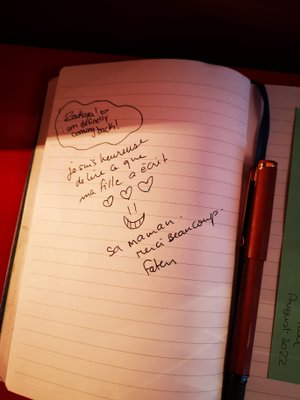 i am definetly
coming back!
je suis heureuse
de lire ce que
ma fille a écrit
sa maman.
merci Beaucoup.
Faten
August 2022